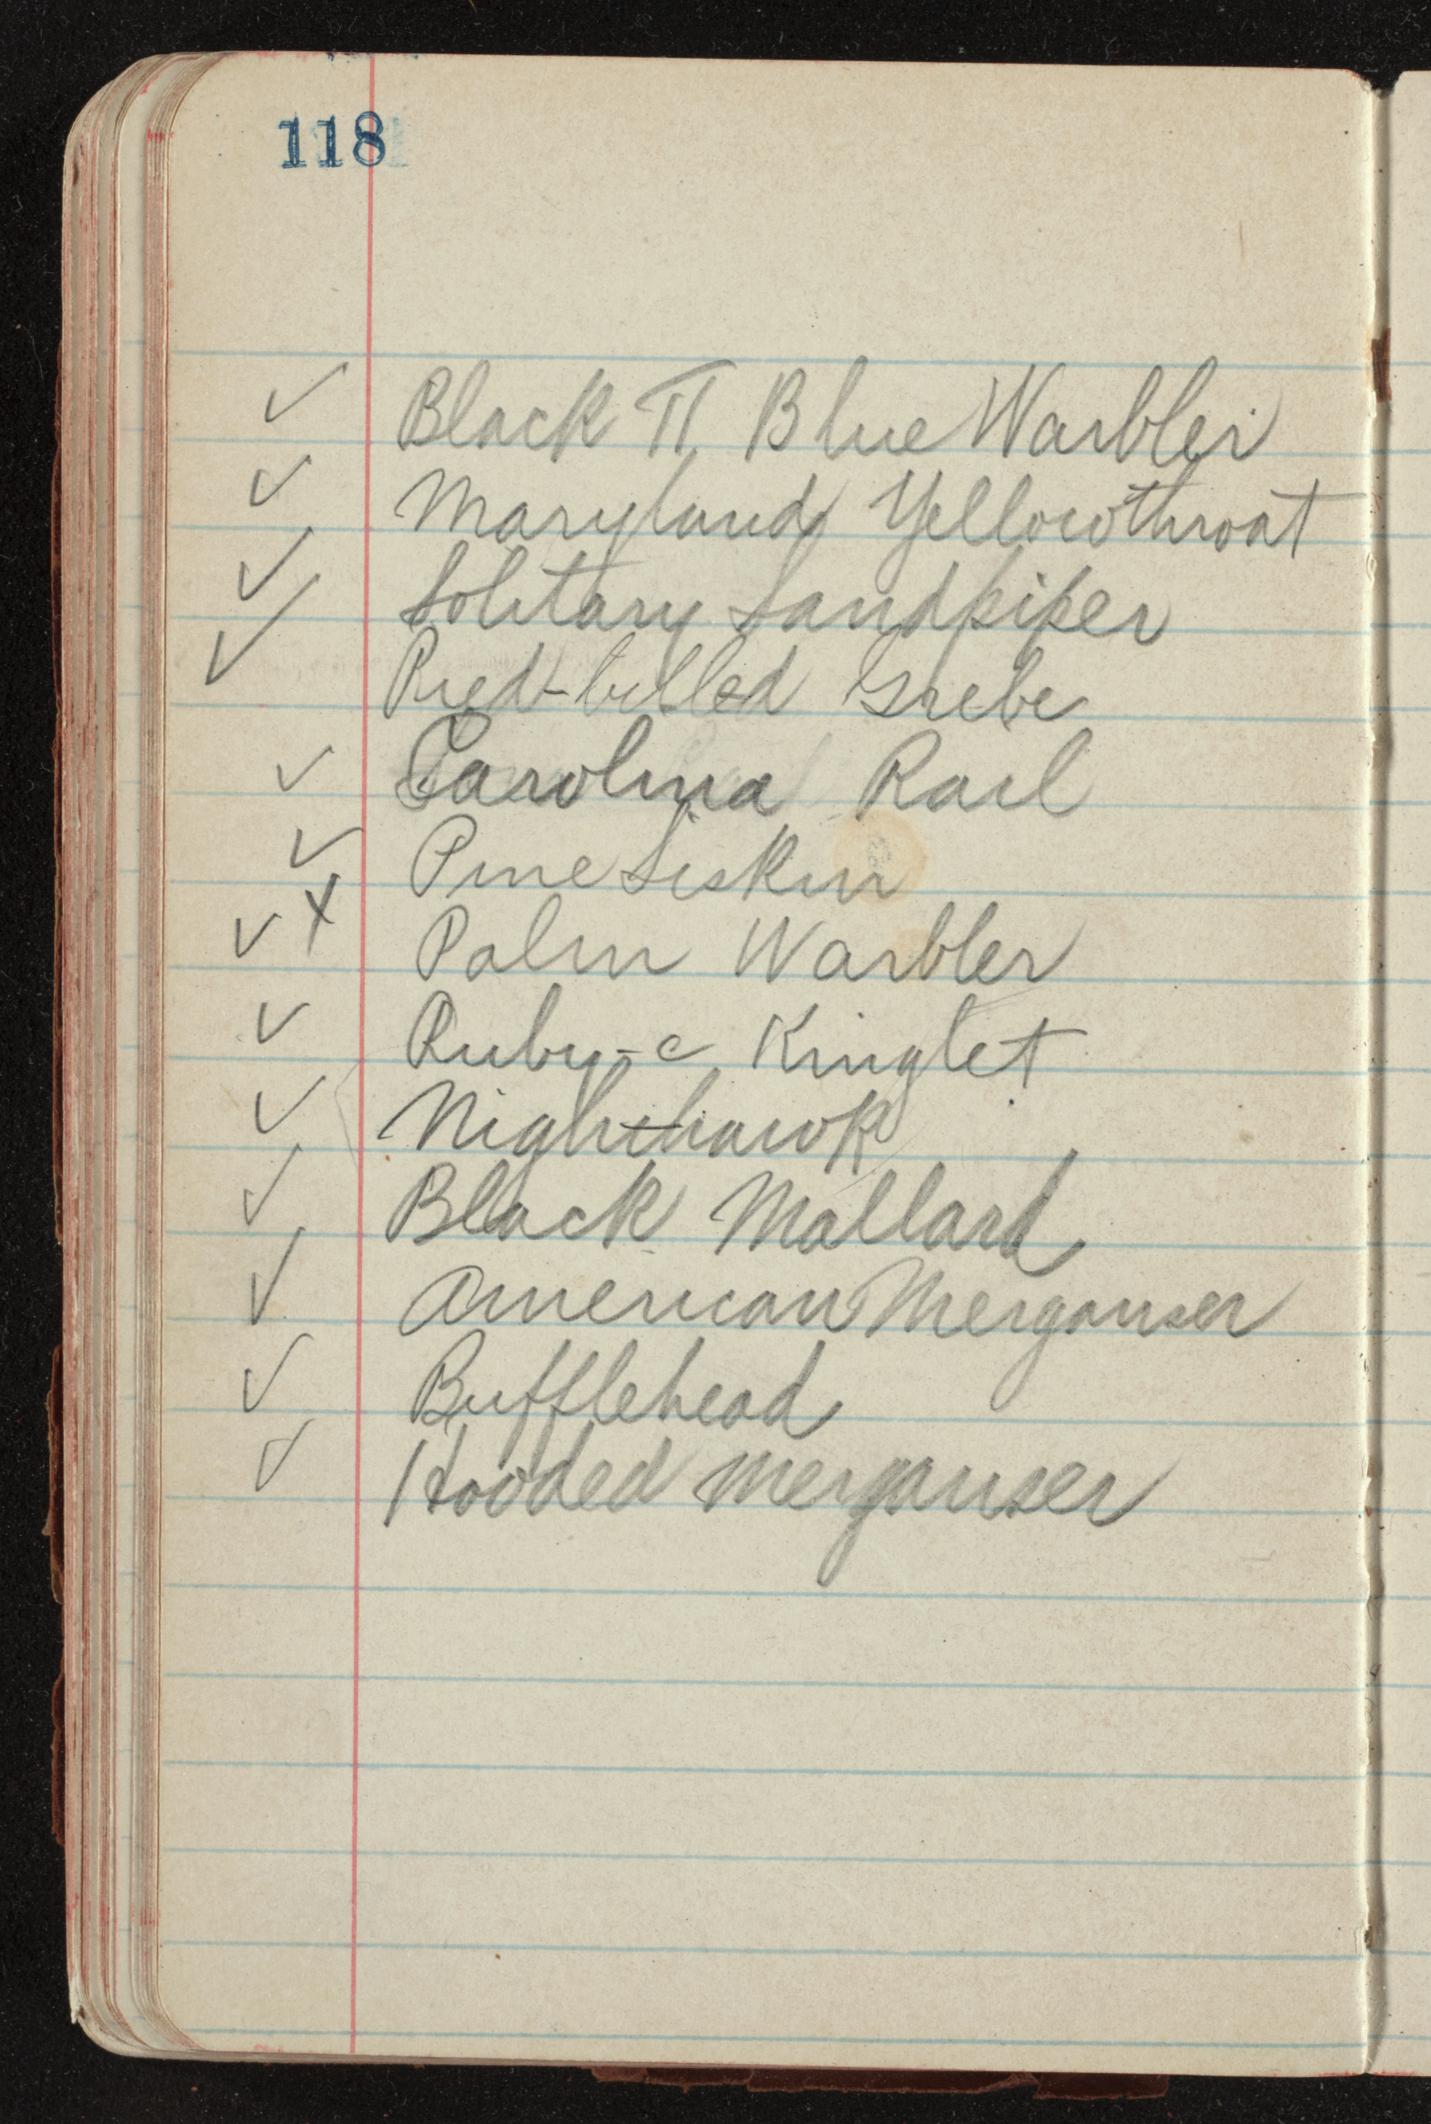 118
✓ Black Tt. Blue Warbler
✓ Maryland Yellowthroat
✓ Solitary Sandpiper
✓ Pied-billed Grebe
✓ Carolina Rail
✓ Pine Siskin
✓ x Palm Warbler
✓ Ruby-c Kinglet
✓ Nighthawk
✓ Black Mallard
✓ American Merganser
✓ Bufflehead
✓ Hooded Merganser